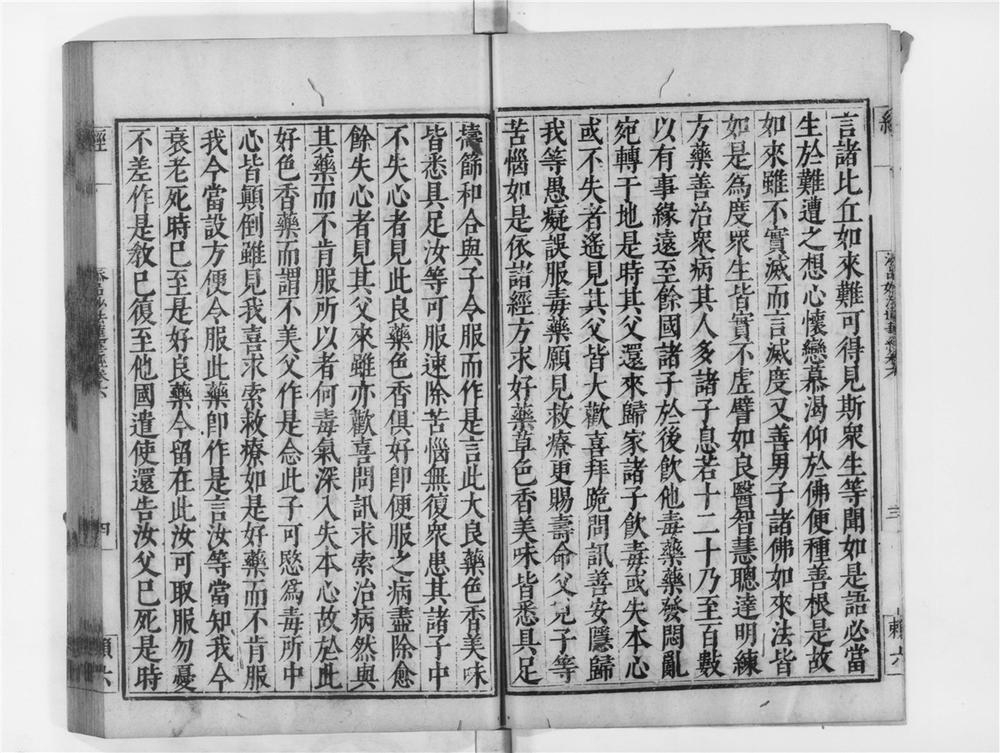 言諸比丘如來難可得見斯衆生等聞如是語必當
生於難遭之想心懷戀慕渴仰於佛便種善根是故
如來雖不實滅而言滅度又善男子諸佛如來法皆
如是為度衆生皆實不虛譬如良醫智慧聰達明練
方藥善治衆病其人多諸子息若十二十乃至百數
以有事緣遠至餘國諸子於後飲他毒藥藥發悶亂
宛轉于地是時其父還來歸家諸子飲毒或失本心
或不失者遙見其父皆大歡喜拜跪問訊善安隱歸
我等愚癡誤服毒藥願見救療更賜壽命父見子等
苦惱如是依諸經方求好藥草色香美味皆悉具足
擣篩和合與子令服而作是言此大良藥色香美味
皆悉具足汝等可服速除苦惱無復衆患其諸子中
不失心者見此良藥色香俱好即便服之病盡除愈
餘失心者見其父來雖亦歡喜問訊求索治病然與
其藥而不肯服所以者何毒氣深入失本心故於此
好色香藥而謂不美父作是念此子可愍為毒所中
心皆顛倒雖見我喜求索救療如是好藥而不肯服
我今當設方便令服此藥即作是言汝等當知我今
衰老死時已至是好良藥今留在此汝可取服勿憂
不差作是教已復至他國遣使還告汝父已死是時
經
四
三
賴六